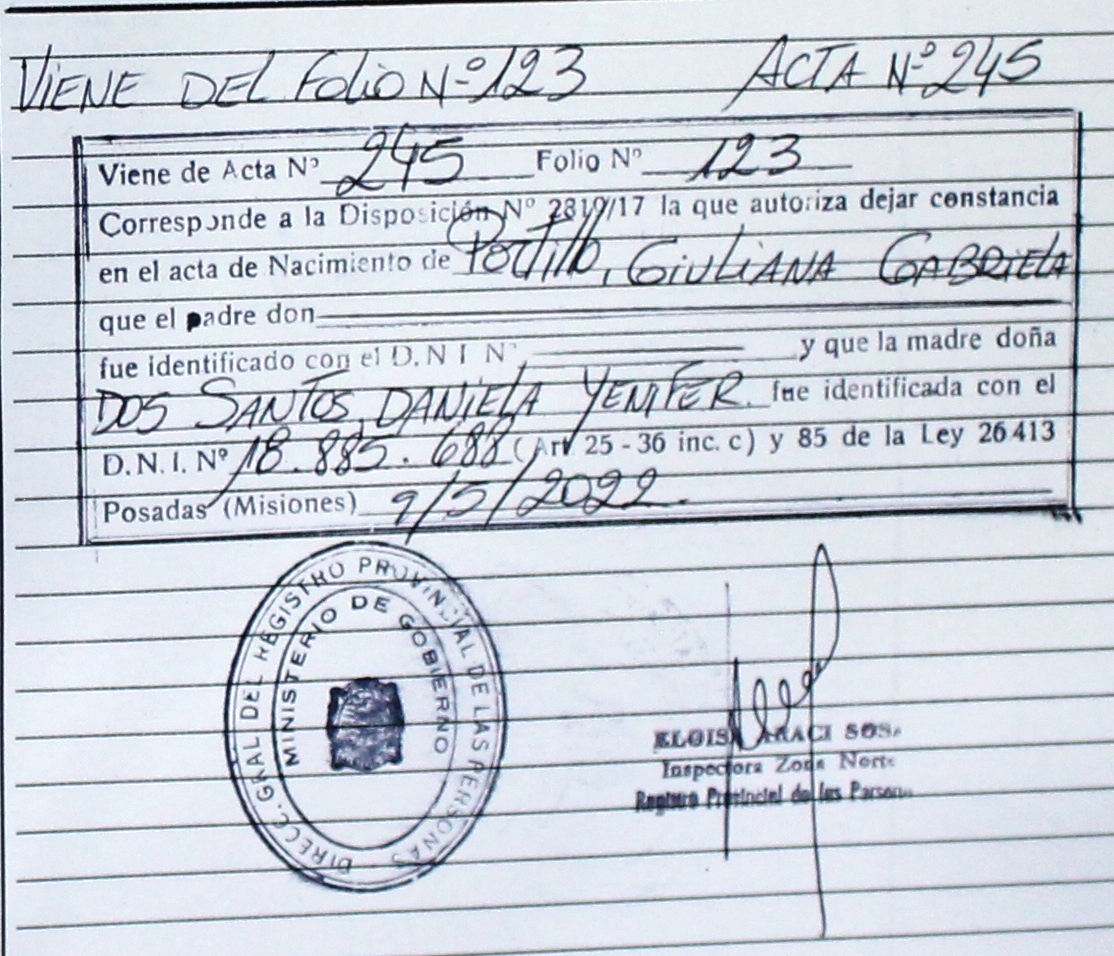 VIENE DEL FOLIO Nº 123 ACTA Nº 245
Viene de Acta Nº 245 Folio Nº 123
Corresponde a la Disposición Nº 2810/17 la que autoriza dejar constancia
en el acta de Nacimiento de Portillo, GIULIANA GABRIELA
que el padre don
fue identificado con el D.N.I Nº y que la madre doña
DOS SANTOS, DANIELA YENIFER. fue identificada con el
D.N.I. Nº 18.885.688 (Art 25 - 36 inc. c) y 85 de la Ley 26413
Posadas (Misiones) 9/5/2022.
DIRECC. GRAL DEL REGISTRO PROVINCIAL DE LAS PERSONAS
MINISTERIO DE GOBIERNO
ELOISA ARACI SOSA
Inspectora Zona Norte
Registro Provincial de las Personas